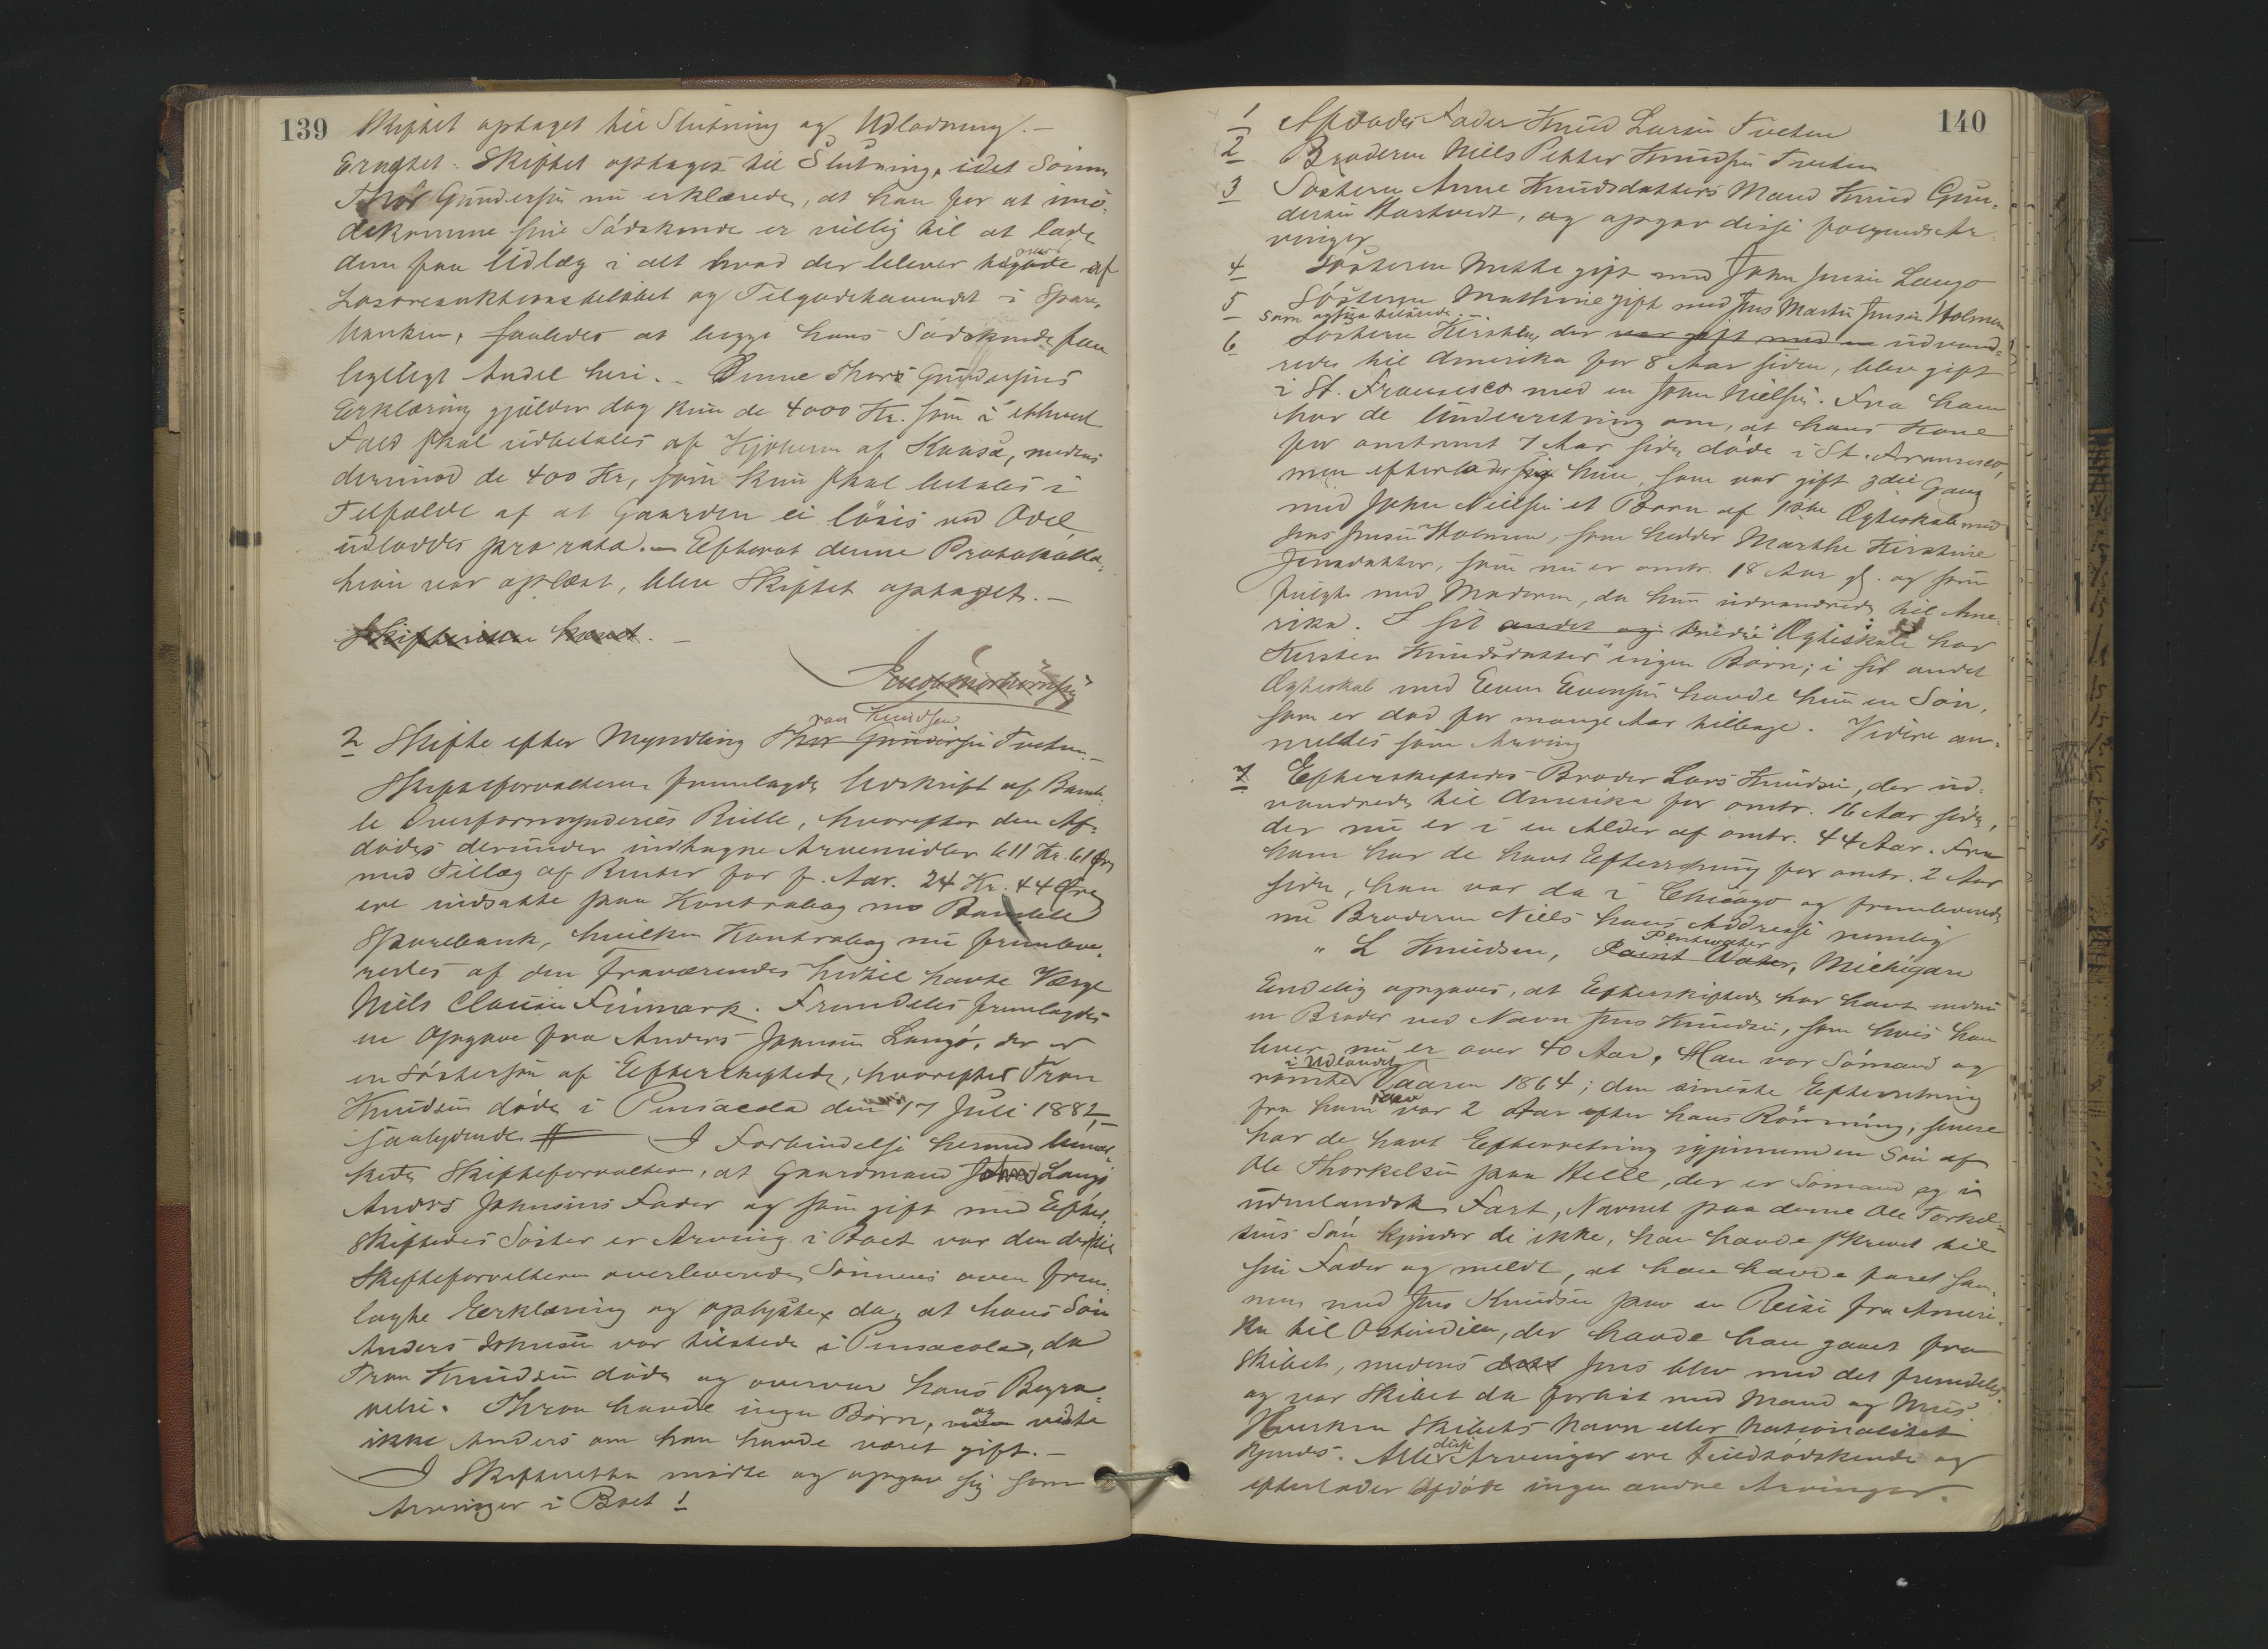 139
Skiftet optaget til Slutning og Udlodning.-
Eragtet: Skiftet optages til Slutning, idet Sönnen
Thor Gundersen nu erklærede, at han for at imö-
dekomme sine Södskende er villig til at lade
dem faa Udlæg i alt hvad der bliver af
Løsøreauktionsbelöbet og Tilgodehavendet i Spare-
banken, saaledes at begge hans Södskende faa
ligeligt Andel heri. - Denne Thors Gundersens
Erklæring gjælder dog kun de 4000 Kr. som i ethvert
Fald skal udbetales af Kjöberen af Kaasa, medens
derimod de 400 Kr, som kun skal betales i
Tilfælde af at Gaarden ei löses ved Odel
udloddes pro rata. - Efterat denne Protokolla-
tion var oplæst, blev Skiftet optaget. -
Skifteretten hævet. -
2 Skifte efter Myndling Thor Gundersen Tron Knudsen Tveten. -
Skifteforvalteren fremlagde Udskrift af Bamb-
le Overformynderies Rulle, hvorefter den Af-
dödes derunder indtagne Arvemidler 611 Kr. 61 Öre
med Tillæg af Renter for f. Aar. 24 Kr. 44 Öre
ere indsatte paa Kontrabog med Bamble
Sparebank, hvilken Kontrabog nu frembæ-
redes af den fraværendes hidtil havte Værge
Niels Clausen Finmark. Fremdeles fremlagdes
en Opgave fra Anders Johnsen Langö, der er
en Söstersön af Efterskiftede, hvorefter Tron
Knudsen döde i Pensacola den 17 Juli 1882,
saalydende # I Forbindelse hermed bemær-
kede Skifteforvalteren, at Gaardmand John Langö
Anders Johnsens Fader og som gift med Efter-
skiftedes Söster er Arving i Boet var den der til
Skifteforvalteren overleverede Sönnens oven frem-
lagte Erklæring og oplyste da, at hans Sön
Anders Johnsen var tilstede i Pensacola, da
Tron Knudsen döde og overvar hans Begra-
velse. Thron havde ingen Börn, men og vidste
ikke Anders om han havde været gift. -
I Skifteretten mödte og opgav sig som
Arvinger i Boet !
140
1 Afdödes Fader Knud Larsen Tveten
2 Broderen Niels Petter Knudsen Tveten
3 Söstern Anne Knudsdatters Mand Knud Gun-
dersen Hartvedt, og opgav disse fölgende Ar-
vinger
4 Sösteren Mette gift med John Jensen Langö
5 Sösteren Mathine gift med Jens Martin Jensen Holmen
som ogsaa tilstede. -
6 Sösteren Kirsten, der var gift med en udvand-
rede til Amerika for 8 Aar siden, blev gift
i St. Francisco med en John Nielsen. Fra ham
har de Underretning om, at hans Kone
for omtrent 7 Aar siden döde i St. Francisco,
men efterlader sig hun, som var gift 3die Gang
med John Nielsen et Barn af 1ste Ægteskab med
Jens Jensen Holmen, som hedder Marthe Kirstine
Jensdatter, som nu er omtr. 18 Aar gl. og som
fulgte med Moderen, da hun udvandrede til Ame-
rika. I sit andet og tredie Ægteskab har
Kirsten Knudsdatter ingen Börn; i sit andet
Ægteskab med Even Evensen havde hun en Sön,
som er död for mange Aar tilbage. Videre an-
meldtes som Arving
7 Efterskiftedes Broder Lars Knudsen, der ud-
vandrede til Amerika for omtr. 16 Aar siden,
der nu er i en Alder af omtr. 44 Aar. Fra
ham har de havt Efterretning for omtr. 2 Aar
siden, han var da i Chicago og fremleverede
nu Broderen Niels hans Addresse nemlig
" L Knudsen, Paint Water, Pentwater Michigan
Endelig opgaves, at Efterskiftede har havt endnu
en Broder ved Navn Jens Knudsen, som hvis han
lever nu er over 40 Aar, Han var Sömand og
römte i Udlandet Vaaren 1864; den eneste Efterretning
fra ham var 2 Aar efter hans Römning; senere
har de havt Efterretning igjennem en Sön af
Ole Thorkelsen paa Helle, der er Sömand og i
udenlandsk Fart, Navnet paa denne Ole Torkel-
sens Sön kjender de ikke, han havde skrevet til
sin Fader og meldt, at han havde faret sam-
men med Jens Knudsen paa en Reise fra Ameri-
ka til Ostindien, der havde han gaaet fra
Skibet, medens Jens blev med det fremdeles
og var Skibet da forlist med Mand og Mus.
Hverken Skibets Navn eller Nationalitet
kjendes. Alle disse Arvinger ere Fuldsödskende og
efterlader Afdöde ingen andre Arvinger.